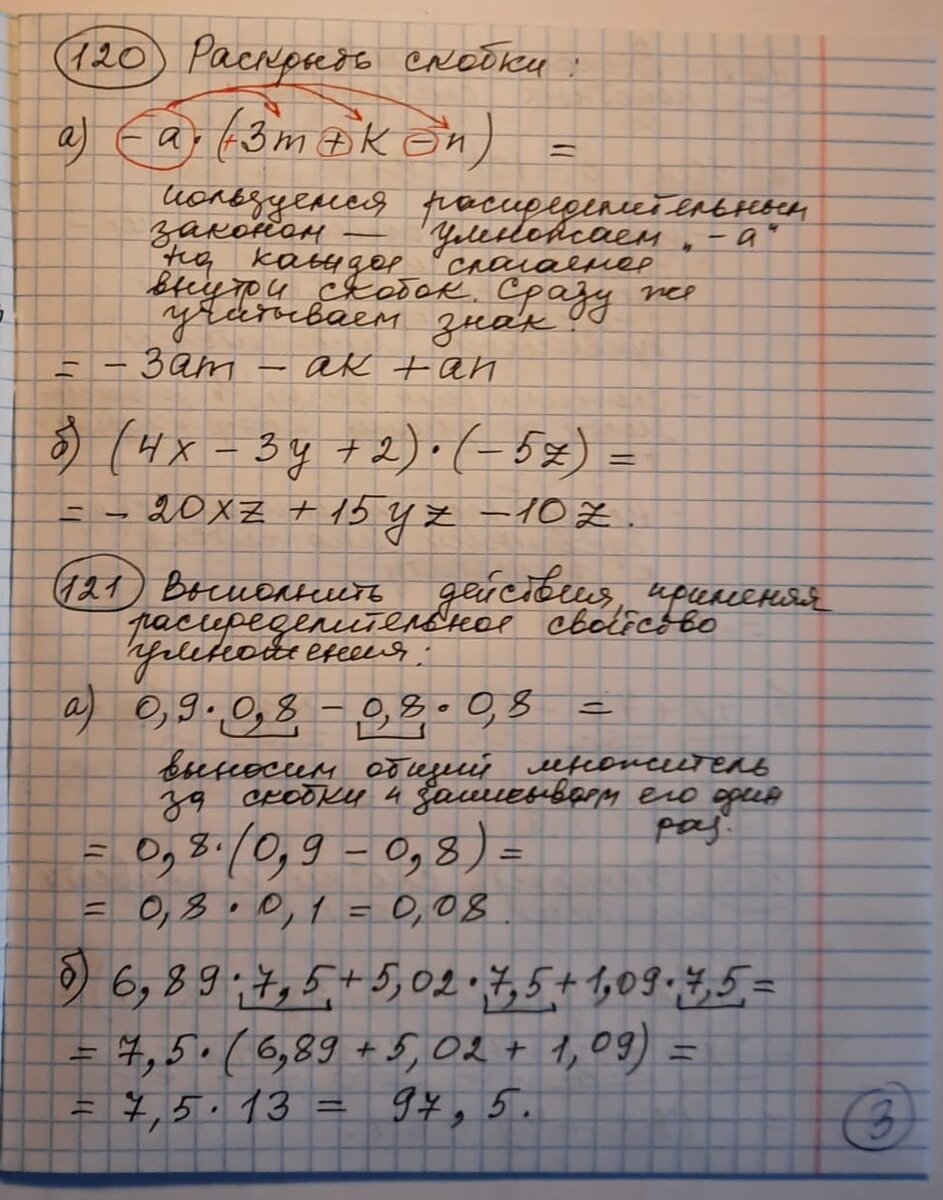 120 Раскрыть скобки:
а) -a·(+3m+k-n) =
пользуемся распределительным
законом — умножаем „-a“
на каждое слагаемое
внутри скобок. Сразу же
учитываем знак.
= -3am - ak + an
б) (4x - 3y + 2)·(-5z) =
= -20xz + 15yz - 10z.
121 Выполнить действия, применяя
распределительное свойство
умножения:
а) 0,9·0,8 - 0,8·0,8 =
выносим общий множитель
за скобки и записываем его один
раз.
= 0,8·(0,9 - 0,8) =
= 0,8·0,1 = 0,08.
б) 6,89·7,5 + 5,02·7,5 + 1,09·7,5 =
= 7,5·(6,89 + 5,02 + 1,09) =
= 7,5·13 = 97,5.
3